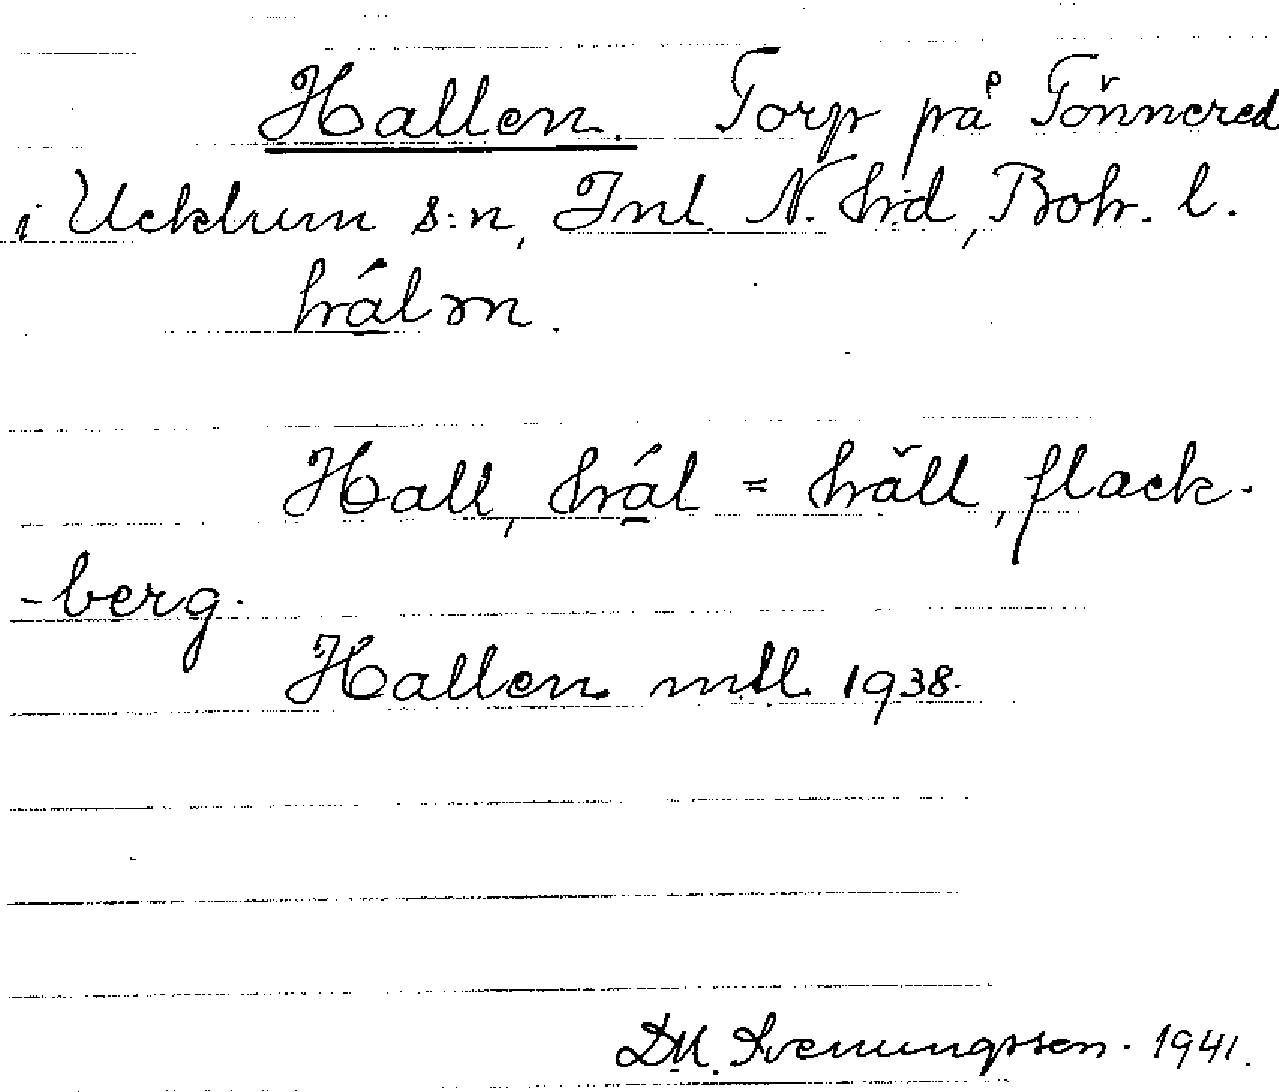 Hallen. Torp på Tönnered
i Ucklum s:n, Inl. N. hrd, Boh. l.
hálm.
Hall, hál = häll, flack-
-berg.
Hallen mtl 1938.
D.M. Svenungsson. 1941.